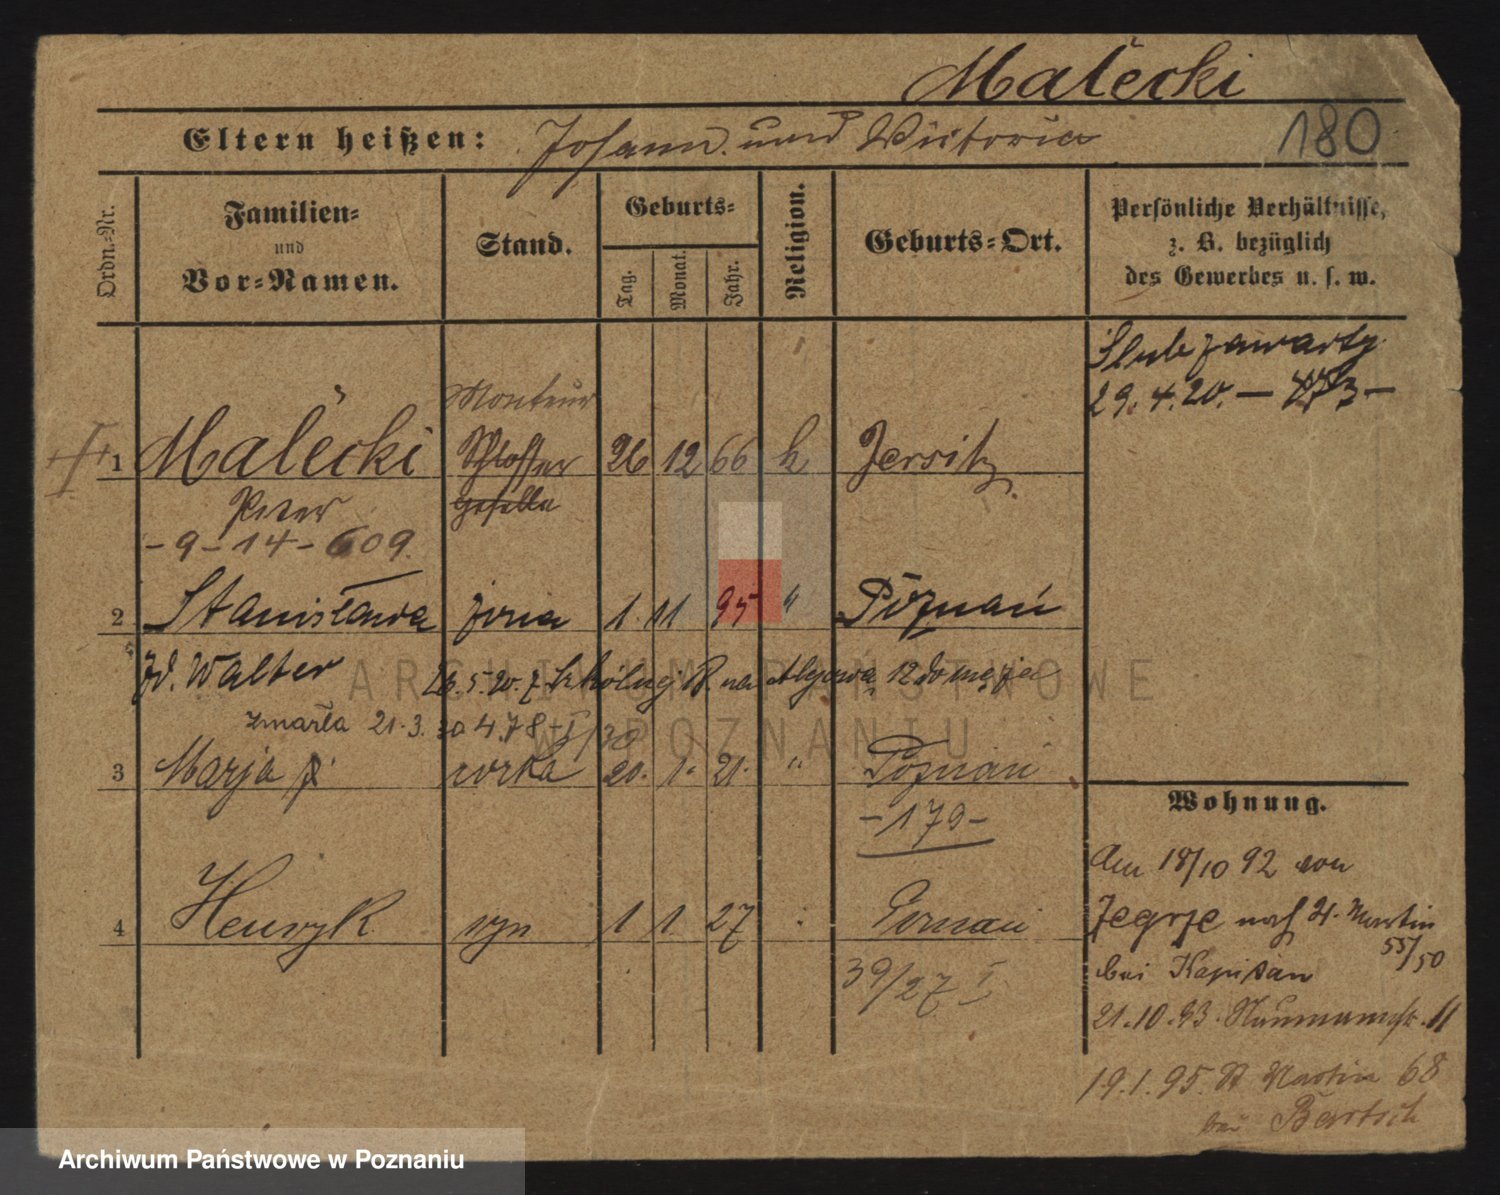 Malecki
Eltern heißen: Johann und Victoria
180
Ordn.-Nr.
Familien-
und
Vor-Namen.
Stand.
Geburts-
Tag.
Monat.
Jahr.
Religion.
Geburts-Ort.
Persönliche Verhältnisse,
z. B. bezüglich
des Gewerbes u. s. w.
Ślub zawarty
29.4.20. —
Monteur
1 Malecki Schlosser 26 12 66 k Jersitz
Peter geselle
- 9 - 14 - 609.
2 Stanisława żona 1 11 95 " Poznań
zd. Walter 26.5.20. z 12 do męża
zmarła 21.3.30 478-I/30
3 Marja córka 20. 1. 21. " Poznań
- 179 -
4 Henryk syn 1 1 27 Poznań
39/27 I
Wohnung.
Am 18/10 92 von
Zegrze nach St. Martin
55/50
bei Kapitan
21.10.93. Naumannstr. 11
19.1.95. St Martin 68
bei Bartsch
ARCHIWUM PAŃSTWOWE
W POZNANIU
Archiwum Państwowe w Poznaniu